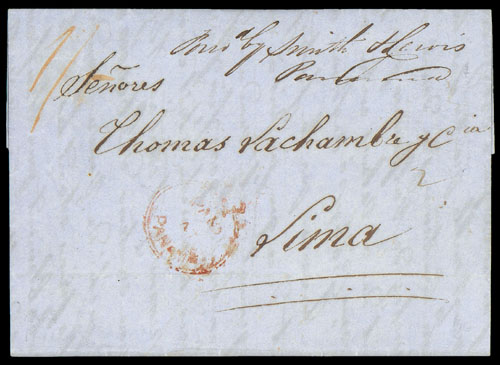 1/-
Fwd by Smith & Lewis
Panama
Señores
Thomas Lachambre y Cia
2
Lima
PAID
PANAMA